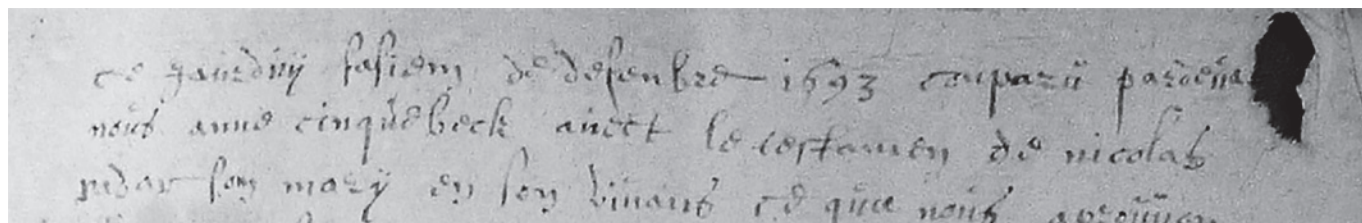 ce jourduij sasiem de desenbre 1693 conparu pardeua
nous anne cinquebeck auect le testamen de nicolas
son marij en son viuans ce que nous aprouuon